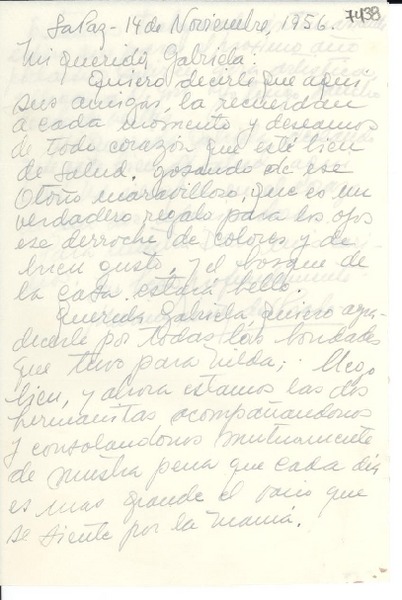 7438
La Paz - 14 de Noviembre, 1956.
Mi querida Gabriela:
Quiero decirle que aquí
sus amigas, la recuerdan
a cada momento y deseamos
de todo corazón que esté bien
de salud. gosando de ese
Otoño maravilloso, que es un
verdadero regalo para los ojos
ese derroche de colores y de
buen gusto, y el bosque de
la casa estará bello.
Querida Gabriela quiero agra-
decerle por todas las bondades
que tuvo para Nilda; llegó
bien, y ahora estamos las dos
hermanitas acompañandonos
y consolandonos mutuamente
de nuestra pena que cada día
es mas grande el vacio que
se siente por la mamá.